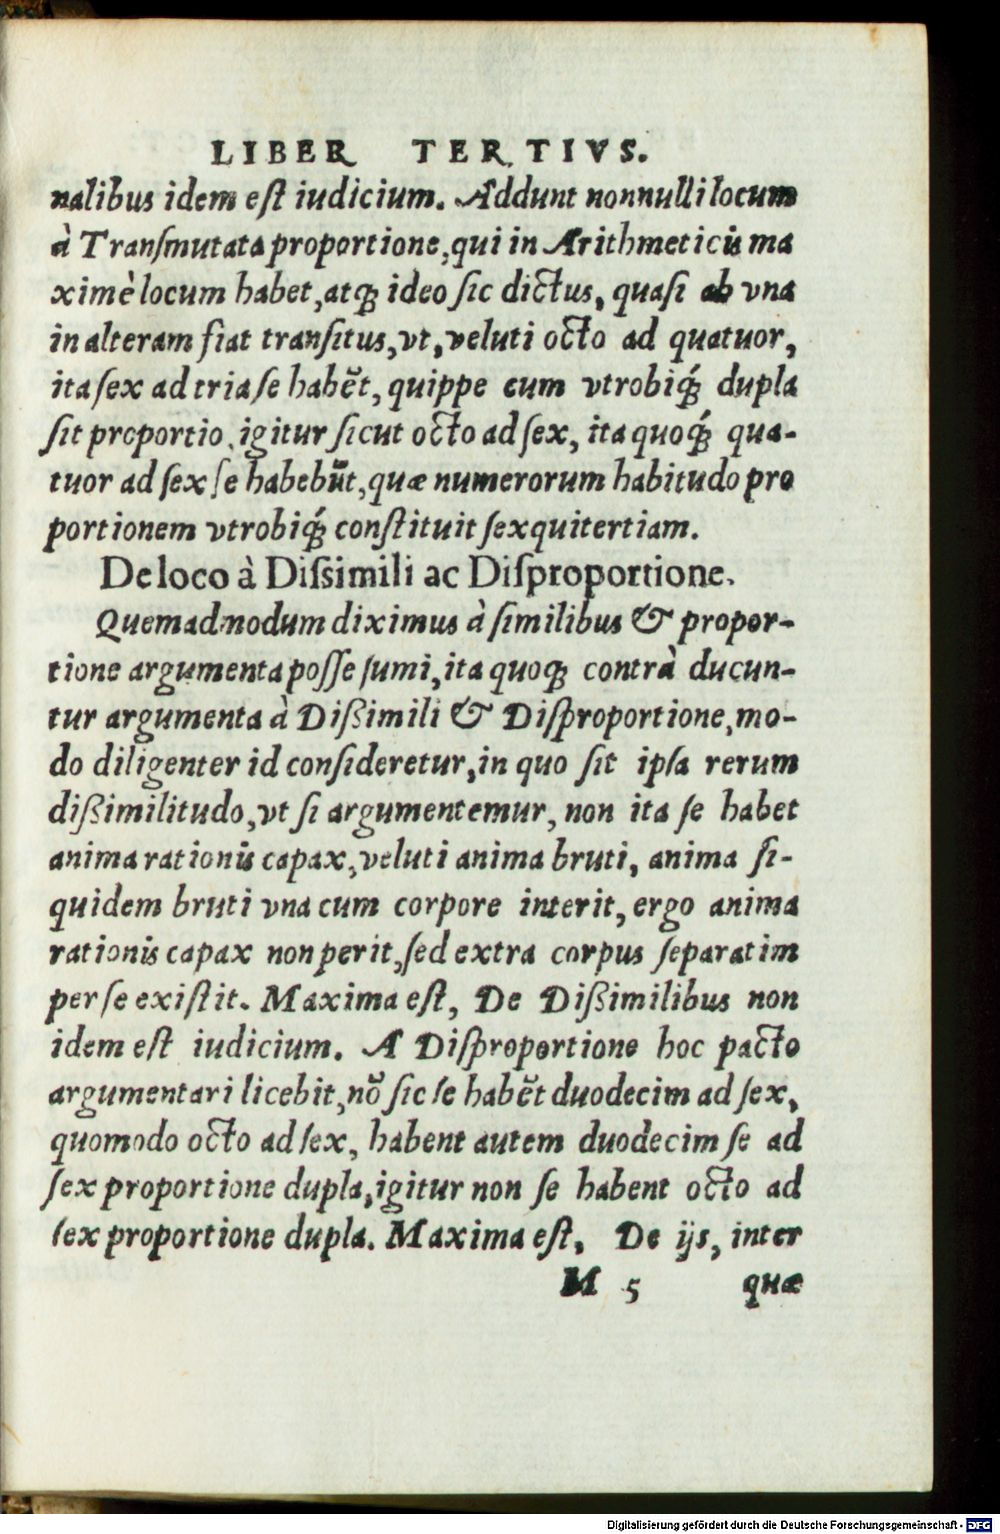 LIBER TERTIVS.
nalibus idem eſt iudicium. Addunt nonnulli locum
à Tranſmutata proportione, qui in Arithmeticis ma
ximè locum habet, atqꝫ ideo ſic dictus, quaſi ab vna
in alteram fiat tranſitus, vt, veluti octo ad quatuor,
ita ſex ad tria ſe habēt, quippe cum vtrobiqꝫ́ dupla
ſit proportio, igitur ſicut octo ad ſex, ita quoqꝫ́ qua-
tuor ad ſex ſe habebūt, quæ numerorum habitudo pro
portionem vtrobiqꝫ́ conſtituit ſexquitertiam.
De loco à Diſsimili ac Diſproportione.
Quemadmodum diximus à ſimilibus & propor-
tione argumenta poſſe ſumi, ita quoqꝫ contrà ducun-
tur argumenta à Dißimili & Diſproportione, mo-
do diligenter id conſideretur, in quo ſit ipſa rerum
dißimilitudo, vt ſi argumentemur, non ita ſe habet
anima rationis capax, veluti anima bruti, anima ſi-
quidem bruti vna cum corpore interit, ergo anima
rationis capax non perit, ſed extra corpus ſeparatim
per ſe exiſtit. Maxima eſt, De Dißimilibus non
idem eſt iudicium. A Diſproportione hoc pacto
argumentari licebit, nō ſic ſe habēt duodecim ad ſex,
quomodo octo ad ſex, habent autem duodecim ſe ad
ſex proportione dupla, igitur non ſe habent octo ad
ſex proportione dupla. Maxima eſt, De ijs, inter
M 5 quæ
Digitalisierung gefördert durch die Deutsche Forschungsgemeinschaft - DFG